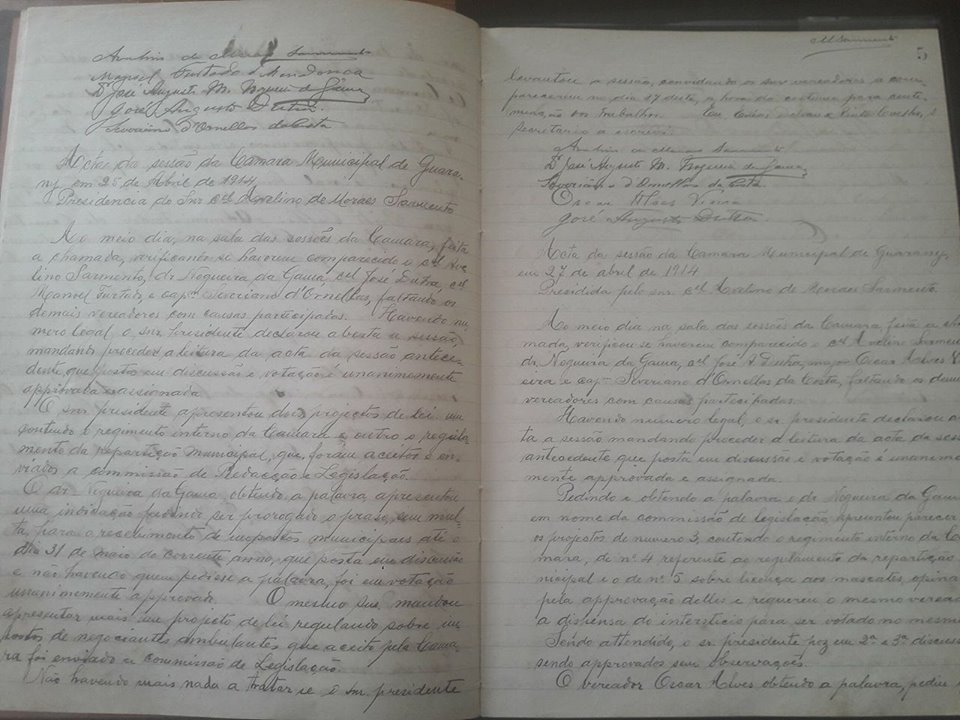 Avelino de Moraes Sarmento
Manoel Furtado de Mendonca
Dr José Augusto M. Nogueira da Gama
José Augusto Dutra
Severiano d'Ornellas da Costa
Acta da sessão da Camara Municipal de Guara-
ny em 25 de Abril de 1914
Presidencia do Snr Cel Avelino de Moraes Sarmento
Ao meio dia, na sala das sessões da Camara, feita
a chamada, verificando-se haverem comparecido o cel Ave
lino Sarmento, dr Nogueira da Gama, cel José Dutra, cel
Manoel Furtado, e capm Severiano d'Ornellas, faltando os
demais vereadores com causas participadas. Havendo nu
mero legal o snr presidente declarou aberta a sessão,
mandando proceder a leitura da acta da sessão antece
dente, que posta em discussão e votação é unanimemente
approvada e assignada.
O snr presidente apresentou dois projectos de lei um
contendo o regimento interno da Camara e outro o regula
mento da repartição municipal, que, foram aceitos e en-
viados a commissão de Redacção e Legislação.
O dr Nogueira da Gama obtendo a palavra apresentou
uma indicação pedindo ser prorogado o praso, sem mul-
ta para o recebimento de impostos municipaes até o
dia 31 de maio do corrente anno, que posta em discussão
e não havendo quem pedisse a palavra, foi em votação
unanimemente approvado. O mesmo snr mandou
apresentar mais um projecto de lei regulando sobre im
postos de negociantes ambulantes que aceito pela Cama-
ra foi enviado a commissão de Legislação.
Não havendo mais nada a tratar-se o snr presidente
M Sarmento
5
levantou a sessão, convidando os snr vereadores a com
parecerem no dia 27 deste, a hora do costume para conti-
nuação dos trabalhos. Eu
secretario a escrevi.
Avelino de Moraes Sarmento
Dr José Augusto M. Nogueira da Gama
Severiano d'Ornellas da Costa
Oscar Alves Vieira
José Augusto Dutra
Acta da sessão da Camara Municipal de Guarany,
em 27 de abril de 1914
Presidida pelo snr. Cel Avelino de Moraes Sarmento.
Ao meio dia na sala das sessões da Camara feita a cha
mada, verificou-se haverem comparecido o cel Avelino Sarmen
dr Nogueira da Gama, cel José A Dutra, major Oscar Alves Vi
eira e capm Severiano d'Ornellas da Costa, faltando os demais
vereadores com causas participadas.
Havendo numero legal, o sr presidente declarou a
ta a sessão mandando proceder a leitura da acta da sess
antecedente que posta em discussão e votação é unanime
mente approvada e assignada.
Pedindo e obtendo a palavra o dr Nogueira da Gama
em nome da commissão de legislação, apresentou parecer
os projectos de numero 3, contendo o regimento interno da Ca
mara, de nº 4 referente ao regulamento da repartição
nicipal e o de nº 5 sobre licença aos mascates, opina
pela approvação delles e requereu o mesmo veread
a dispensa do intersticio para ser votado no mesmo
Sendo attendido o sr presidente poz em 2ª e 3ª discuss
sendo approvados sem observações.
O vereador Oscar Alves obtendo a palavra, pediu